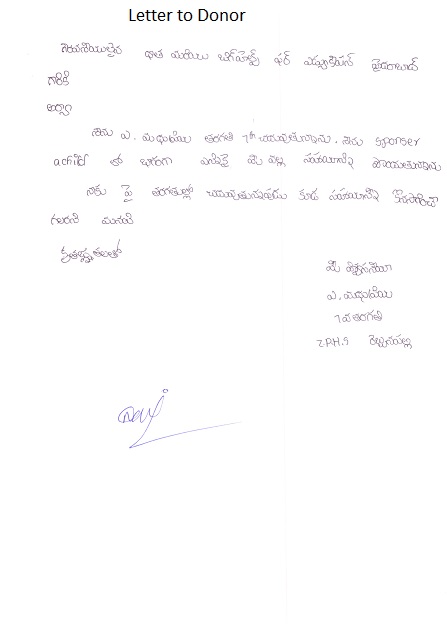 Letter to Donor
గౌరవనీయులైన దాత మరియు బిగ్‌హెల్ప్ ఫర్ ఎడ్యుకేషన్ హైదరాబాద్
గారికి
అయ్యా
నేను ఎ. మధుప్రియ తరగతి 7th చదువుతున్నాను. నేను sponser
achild లో భాగంగా ఎన్నికై మీ వల్ల సహాయాన్ని పొందుతున్నాను
నాకు పై తరగతుల్లో చదువుతున్నపుడు కూడ సహాయాన్ని కొనసాగించ
గలరని మనవి
కృతజ్ఞతలతో
మీ విశ్వసనీయ
ఎ. మధుప్రియ
7వ తరగతి
Z.P.H.S